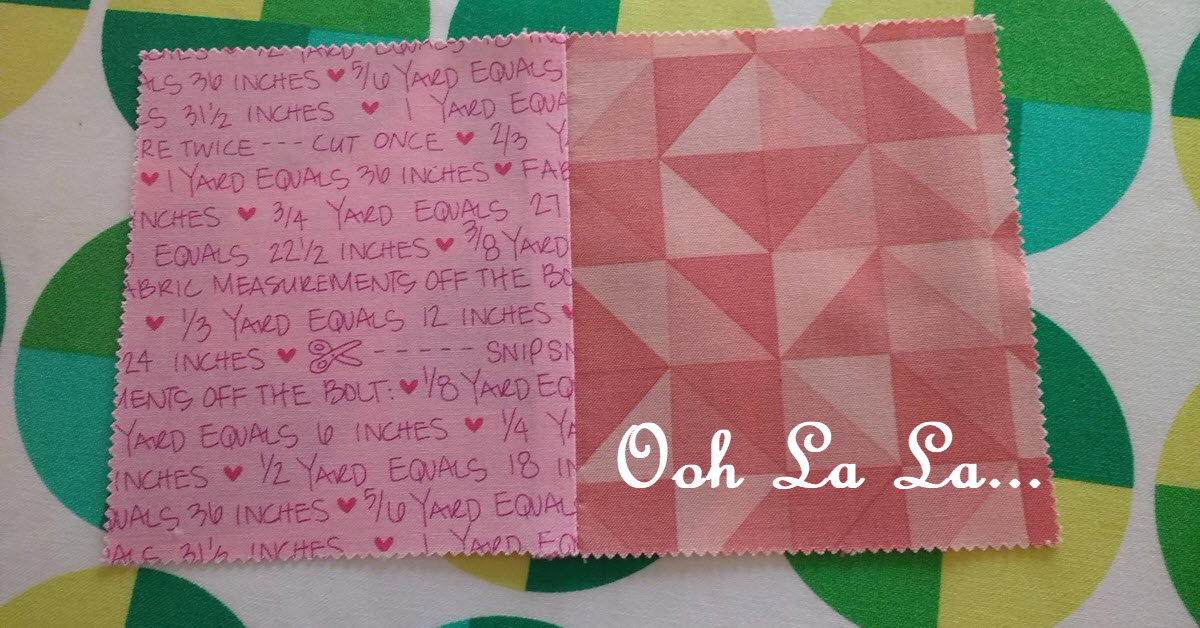 12 YARD EQUALS
ALS 36 INCHES ♥ 5/6 YARD EQUALS
S 31½ INCHES ♥ 1 YARD EQUA
RE TWICE --- CUT ONCE ♥ 2/3 Y
♥ 1 YARD EQUALS 36 INCHES ♥ FAB
INCHES ♥ 3/4 YARD EQUALS 27
EQUALS 22½ INCHES ♥ 3/8 YARD
ABRIC MEASUREMENTS OFF THE BO
♥ 1/3 YARD EQUALS 12 INCHES ♥
24 INCHES ♥ ----- SNIP SN
MENTS OFF THE BOLT: ♥ 1/8 YARD EQ
YARD EQUALS 6 INCHES ♥ 1/4 YA
INCHES ♥ 1/2 YARD EQUALS 18 IN
QUALS 36 INCHES ♥ 5/6 YARD EQUAL
ALS 31½ INCHES ♥ 1 YARD EQ
Ooh La La...